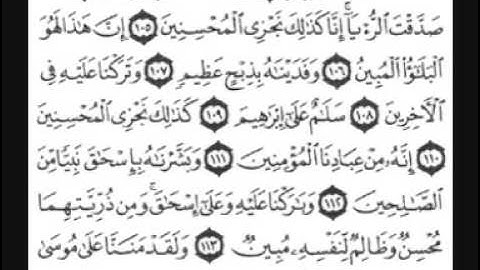 صَدَّقْتَ الرُّءْيَا ۚ إِنَّا كَذَٰلِكَ نَجْزِى الْمُحْسِنِينَ ١٠٥ إِنَّ هَٰذَا لَهُوَ
الْبَلَٰٓؤُا الْمُبِينُ ١٠٦ وَفَدَيْنَٰهُ بِذِبْحٍ عَظِيمٍ ١٠٧ وَتَرَكْنَا عَلَيْهِ فِى
الْءَاخِرِينَ ١٠٨ سَلَٰمٌ عَلَىٰٓ إِبْرَٰهِيمَ ١٠٩ كَذَٰلِكَ نَجْزِى الْمُحْسِنِينَ
١١٠ إِنَّهُۥ مِنْ عِبَادِنَا الْمُؤْمِنِينَ ١١١ وَبَشَّرْنَٰهُ بِإِسْحَٰقَ نَبِيًّا مِّنَ
الصَّٰلِحِينَ ١١٢ وَبَٰرَكْنَا عَلَيْهِ وَعَلَىٰٓ إِسْحَٰقَ ۚ وَمِن ذُرِّيَّتِهِمَا
مُحْسِنٌ وَظَالِمٌ لِّنَفْسِهِۦ مُبِينٌ ١١٣ وَلَقَدْ مَنَنَّا عَلَىٰ مُوسَىٰ